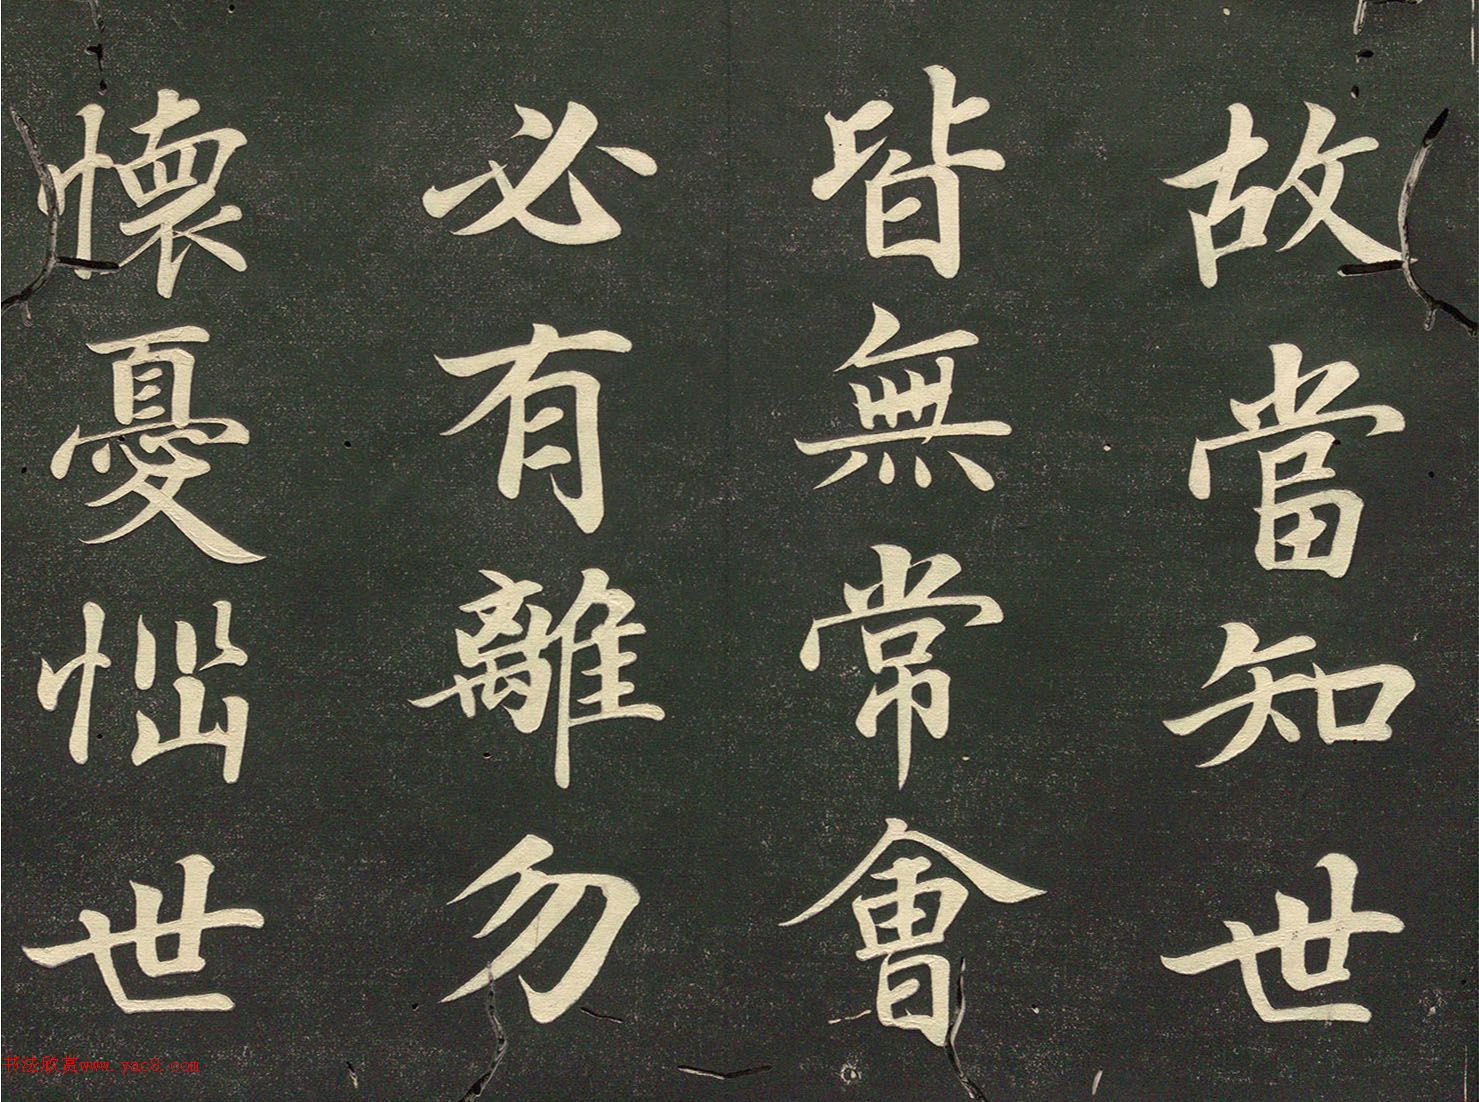 故當知世
皆無常會
必有離勿
懷憂惱世
书法欣赏www.yac8.com